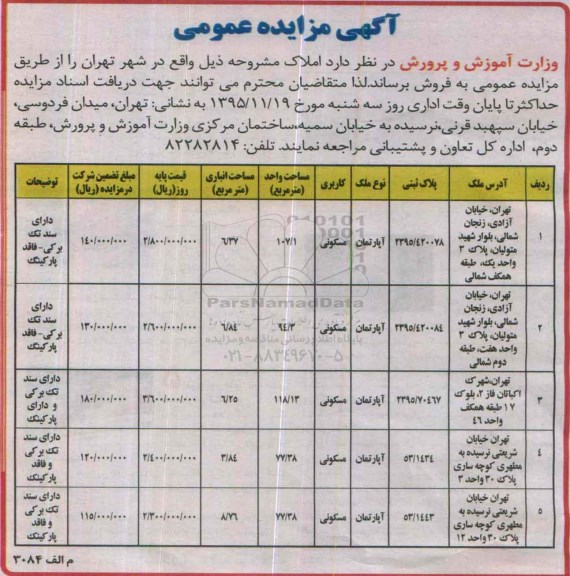 آگهی مزایده عمومی
وزارت آموزش و پرورش در نظر دارد املاک مشروحه ذیل واقع در شهر تهران را از طریق
مزایده عمومی به فروش برساند.لذا متقاضیان محترم می توانند جهت دریافت اسناد مزایده
حداکثرتا پایان وقت اداری روز سه شنبه مورخ ۱۳۹۵/۱۱/۱۹ به نشانی: تهران، میدان فردوسی،
خیابان سپهبد قرنی،نرسیده به خیابان سمیه،ساختمان مرکزی وزارت آموزش و پرورش، طبقه
دوم، اداره کل تعاون و پشتیبانی مراجعه نمایند. تلفن: ۸۲۲۸۲۸۱۴
ردیف آدرس ملک پلاک ثبتی نوع ملک کاربری مساحت واحد (مترمربع) مساحت انباری (متر مربع) قیمت پایه روز(ریال) مبلغ تضمین شرکت درمزایده (ریال) توضیحات
۱ تهران، خیابان آزادی، زنجان شمالی، بلوار شهید متولیان، پلاک ۳ واحد یک، طبقه همکف شمالی ۲۳۹۵/۴۲۰۰۷۸ آپارتمان مسکونی ۱۰۷/۱ ۶/۳۷ ۲/۸۰۰/۰۰۰/۰۰۰ ۱۴۰/۰۰۰/۰۰۰ دارای سند تک برکی- فاقد پارکینگ
۲ تهران، خیابان آزادی، زنجان شمالی، بلوار شهید متولیان، پلاک ۳ واحد هفت، طبقه دوم شمالی ۲۳۹۵/۴۲۰۰۸۴ آپارتمان مسکونی ۹۴/۳ ۶/۸۴ ۲/۶۰۰/۰۰۰/۰۰۰ ۱۳۰/۰۰۰/۰۰۰ دارای سند تک برکی- فاقد پارکینگ
۳ تهران،شهرک اکباتان فاز ۲، بلوک ۱۷ طبقه همکف واحد ۴۶ ۲۳۹۵/۷۰۴۶۷ آپارتمان مسکونی ۱۱۸/۱۳ ۶/۲۵ ۳/۶۰۰/۰۰۰/۰۰۰ ۱۸۰/۰۰۰/۰۰۰ دارای سند تک برکی و دارای پارکینگ
۴ تهران خیابان شریعتی نرسیده به مطهری کوچه ساری پلاک ۳۰ واحد ۳ ۵۳/۱۴۳۴ آپارتمان مسکونی ۷۷/۳۸ ۳/۸۴ ۲/۴۰۰/۰۰۰/۰۰۰ ۱۲۰/۰۰۰/۰۰۰ دارای سند تک برکی و فاقد پارکینگ
۵ تهران خیابان شریعتی نرسیده به مطهری کوچه ساری پلاک ۳۰ واحد ۱۲ ۵۳/۱۴۴۳ آپارتمان مسکونی ۷۷/۳۸ ۸/۷۶ ۲/۳۰۰/۰۰۰/۰۰۰ ۱۱۵/۰۰۰/۰۰۰ دارای سند تک برکی و فاقد پارکینگ
ParsNamadData
پایگاه اطلاع رسانی مناقصه و مزایده
۰۲۱-۸۸۳۴۹۶۷۰-۵
م الف ۳۰۸۴